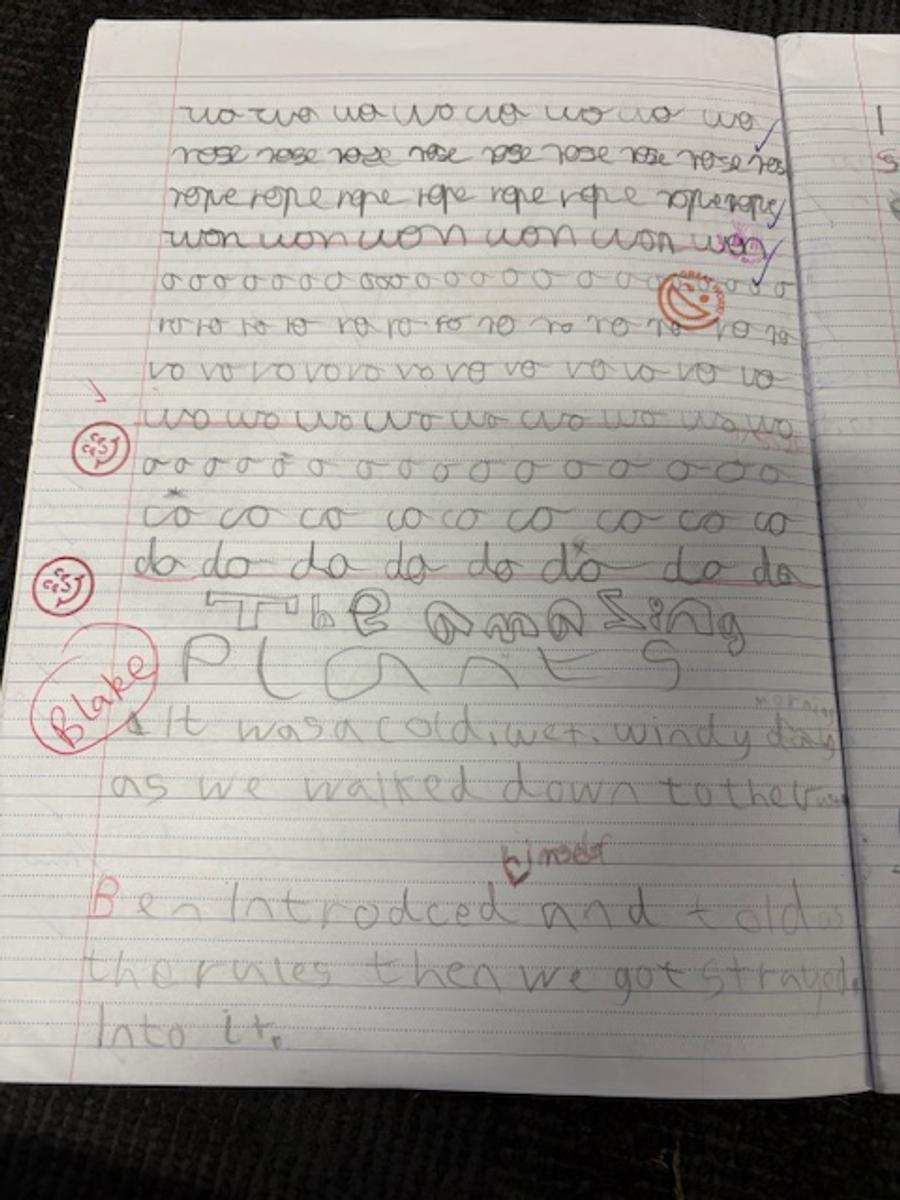 wo wo wo wo wo wo wo wo
rose rose rose rose rose rose rose rose
rope rope rope rope rope rope rope rope
won won won won won won
o o o o o o o o o o o o o o o o
ro ro ro ro ro ro ro ro ro ro ro ro ro
vo vo vo vo vo vo vo vo vo vo vo
wo wo wo wo wo wo wo wo wo
o o o o o o o o o o o o o o
co co co co co co co co co
do do do do do do do do
The amazing
Plants
Blake
morning
It was a cold, wet, windy day
as we walked down to the
himself
Ben Introdced and told
the rules then we got strayed
Into it.